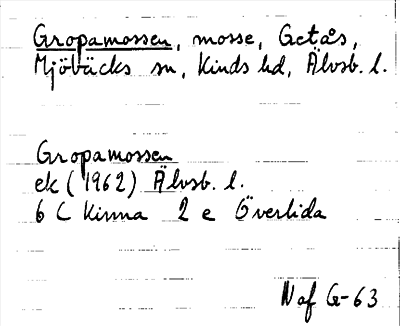 Gropamossen, mosse, Getås,
Mjöbäcks sn, Kinds hd, Älvsb. l.
Gropamossen
ek (1962) Älvsb. l.
6 C Kinna 2 e Överlida
Naf G-63